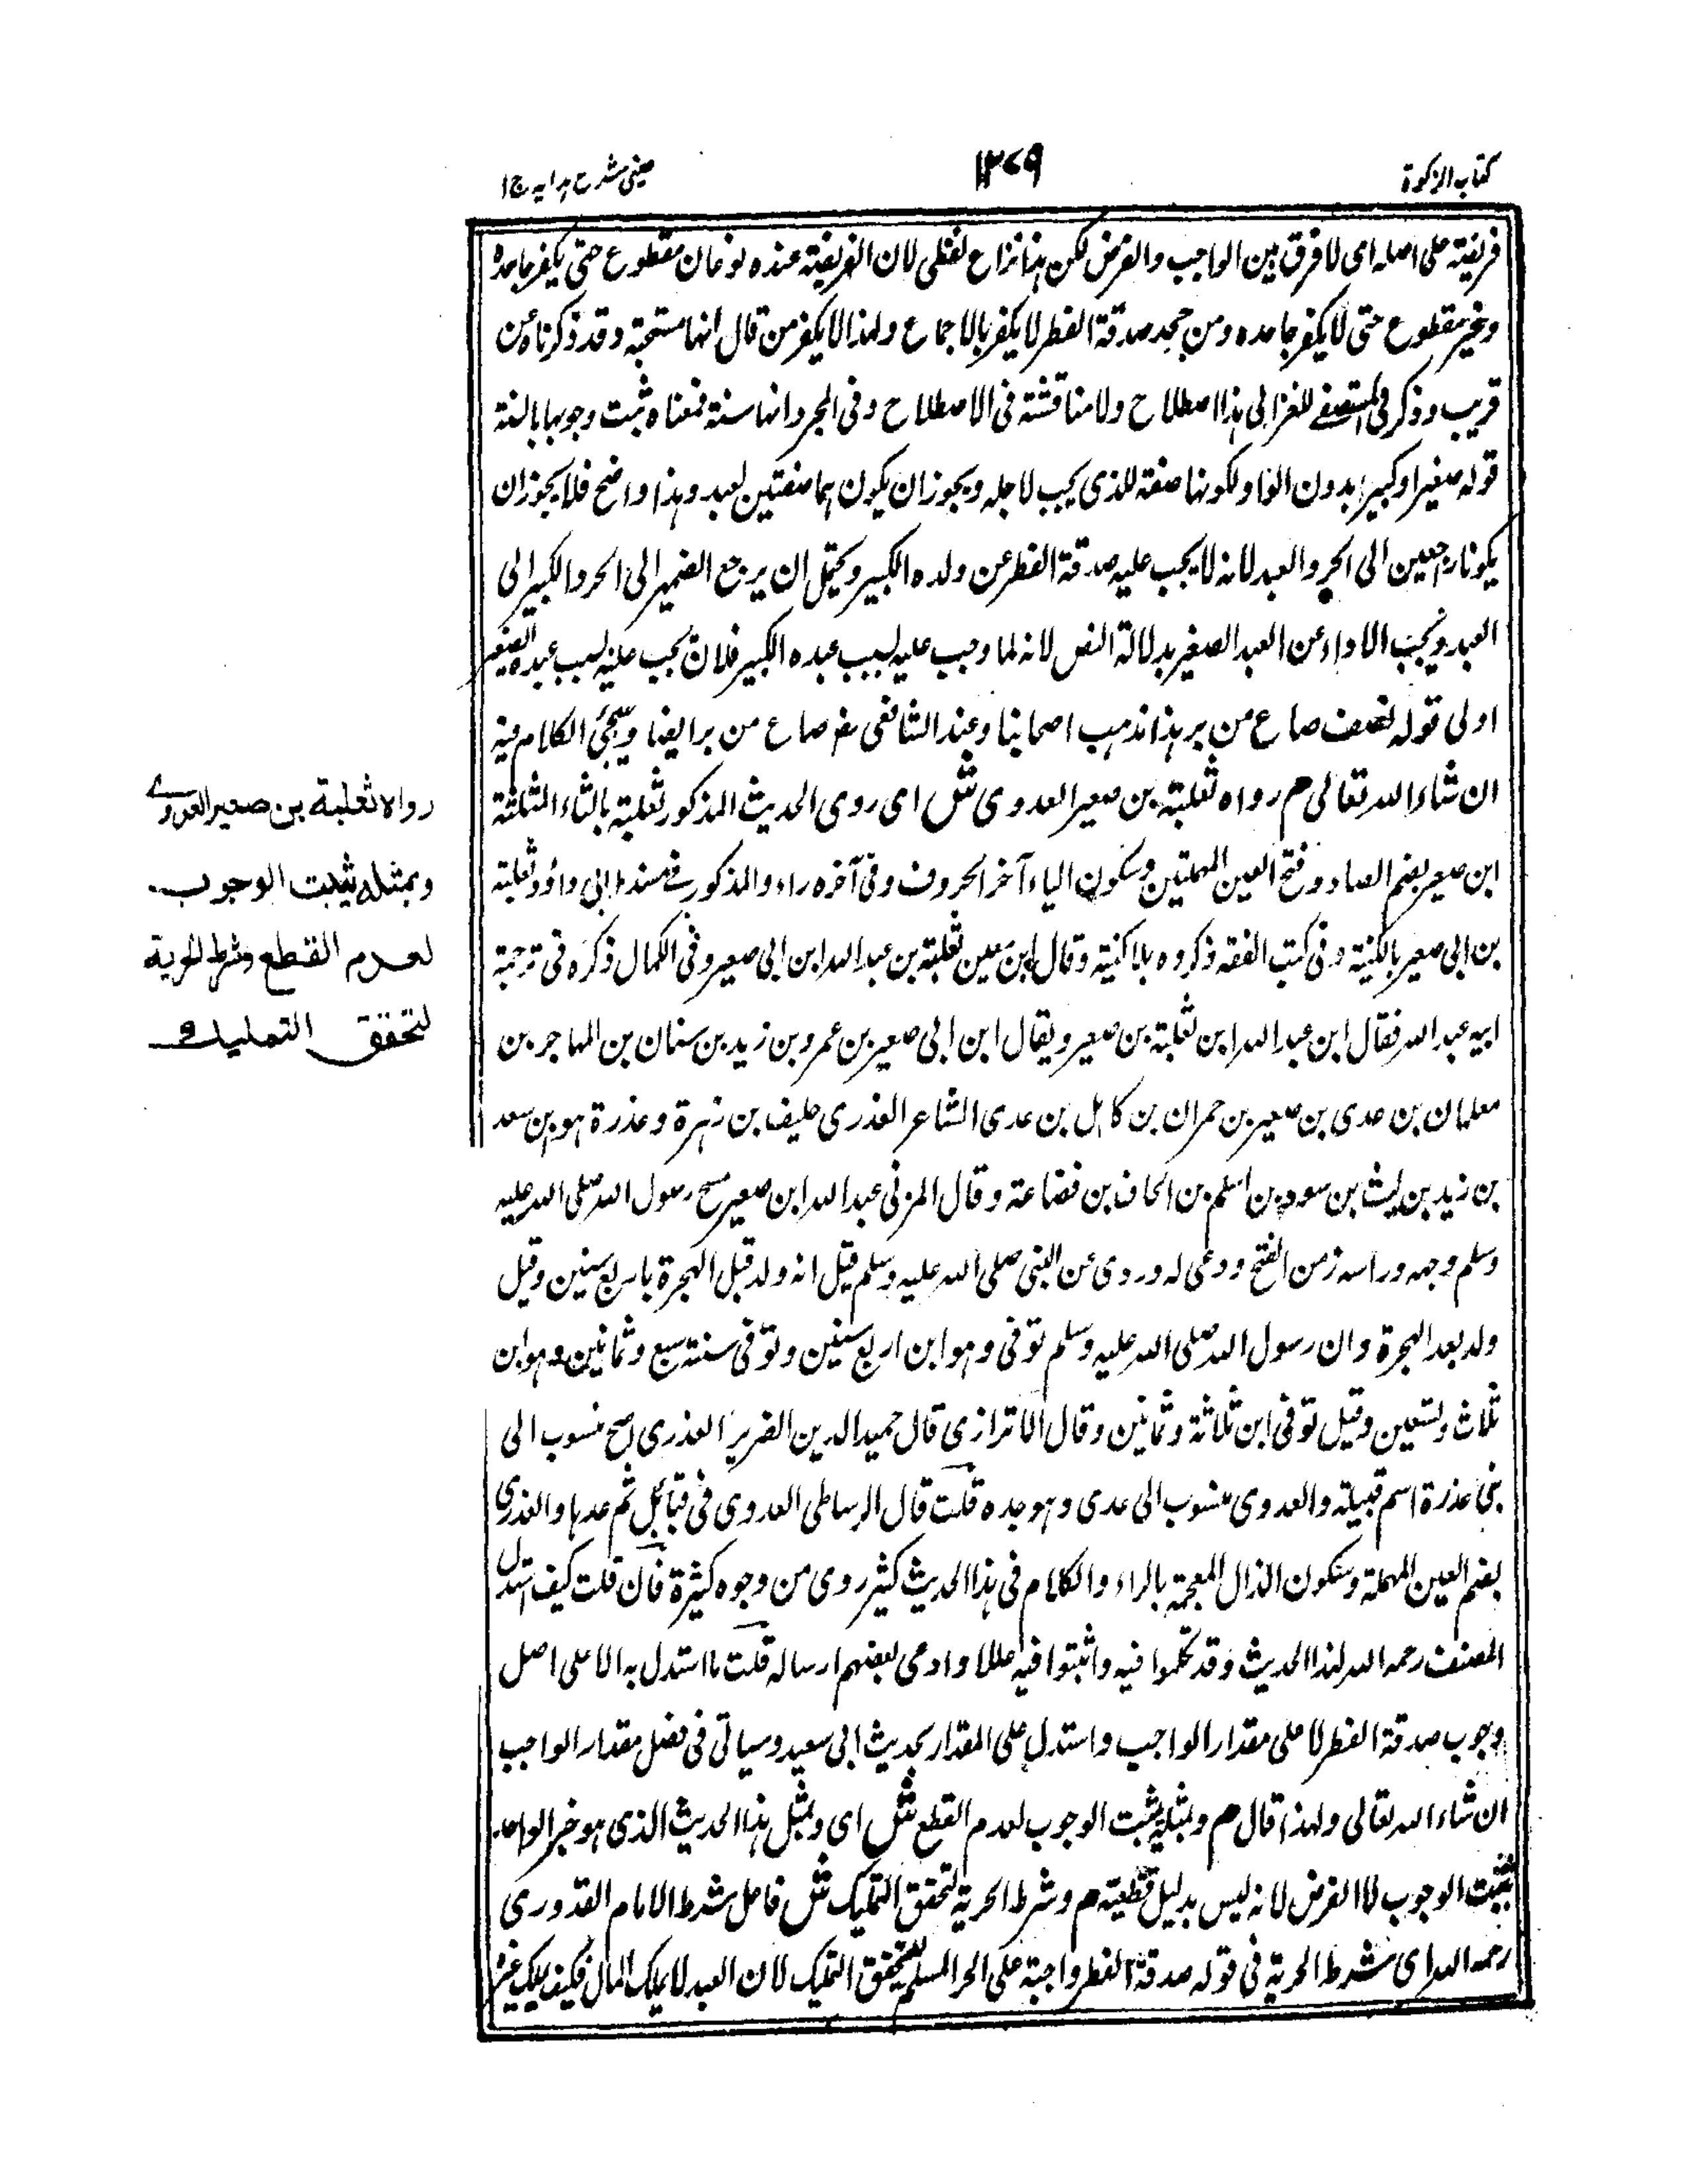 كتاب الزكوة
١٢٧٩
عینی شرح ہدایہ ج ١
فريضة على اصله اى لا فرق بين الواجب والفرض لكن هذا نزاع لفظى لان الفريضة عنده نوعان مقطوع حتى يكفر جاحده
وغير مقطوع حتى لا يكفر جاحده ومن جحد صدقة الفطر لا يكفر بالاجماع ولهذا لا يكفر من قال انها مستحبة وقد ذكرناه عن
قريب وذكر فى المستصفے للغزالى هذا اصطلاح ولا مناقشة فى الاصطلاح وفى المجرد انها سنة فمعناه ثبت وجوبها بالسنة
قوله صغيرا وكبيرا بدون الواو لكونها صفة للذى يجب لاجله ويجوز ان يكون هما صفتين لعبد وهذا واضح فلا يجوز ان
يكونا راجعين الى الحر والعبد لانه لا يجب عليه صدقة الفطر عن ولده الكبير ويحتمل ان يرجع الضمير الى الحر والكبير الى
العبد ويجب الاداء عن العبد الصغير بدلالة النص لانه لما وجب عليه بسبب عبده الكبير فلان يجب عليه بسبب عبده الصغير
اولى قوله نصف صاع من بر هذا مذهب اصحابنا وعند الشافعى صاع من بر ايضا وسيجئ الكلام فيه
ان شاء الله تعالى م رواه ثعلبة بن صعير العدوى ش اى روى الحديث المذكور ثعلبة بالثاء المثلثة
ابن صعير بضم الصاد وفتح العين المهملتين وسكون الياء آخر الحروف وفى آخره راء والمذكور فے مسند ابى داؤد ثعلبة
بن ابى صعير بالكنية وفى كتب الفقه ذكروه بلا كنية وقال ابن معين ثعلبة بن عبد الله ابن ابى صعير وفى الكمال ذكره فى ترجمة
ابيه عبد الله فقال ابن عبد الله ابن ثعلبة بن صعير ويقال ابن ابى صعير بن عمرو بن زيد بن سنان بن المهاجر بن
سلمان بن عدى بن صعير بن حمران بن كاهل بن عدى الشاعر العذرى حليف بن زهرة وعذرة هو بن سعد
بن زيد بن ليث بن سود بن اسلم بن الحاف بن قضاعة وقال المزنى عبد الله ابن صعير مسح رسول الله صلى الله عليه
وسلم وجهه وراسه زمن الفتح ودعى له وروى عن النبى صلى الله عليه وسلم قيل انه ولد قبل الهجرة باربع سنين وقيل
ولد بعد الهجرة وان رسول الله صلى الله عليه وسلم توفى وهو ابن اربع سنين وتوفى سنة سبع وثمانين وهو ابن
ثلاث وتسعين وقيل توفى ابن ثلاثة وثمانين وقال الاترازى قال حميد الدين الضرير العذرى اصح منسوب الى
بنى عذرة اسم قبيلة والعدوى منسوب الى عدى وهو جده قلت قال الرساطى العدوى فى قبائل ثم عدها والعذرى
بضم العين المهملة وسكون الذال المعجمة بالراء والكلام فى هذا الحديث كثير روى من وجوه كثيرة فان قلت كيف استدل
المصنف رحمه الله لهذا الحديث وقد تكلموا فيه واثبتوا فيه عللا وادعى بعضهم ارساله قلت ما استدل به الا على اصل
وجوب صدقة الفطر لا على مقدار الواجب واستدل على المقدار بحديث ابى سعيد وسياتى فى فصل مقدار الواجب
ان شاء الله تعالى ولهذا قال م وبمثله يثبت الوجوب لعدم القطع ش اى وبمثل هذا الحديث الذى هو خبر الواحد
يثبت الوجوب لا الفرض لانه ليس بدليل قطعية م وشرط الحرية لتحقق التمليك ش فاعل شرط الامام القدورى
رحمه الله اى شرط الحرية فى قوله صدقة الفطر واجبة على الحر المسلم ليتحقق التمليك لان العبد لا يملك المال فكيف يملك غيره
رواه ثعلبة بن صعير العدوے
وبمثله يثبت الوجوب
لعدم القطع وشرط الحرية
لتحقق التمليك و